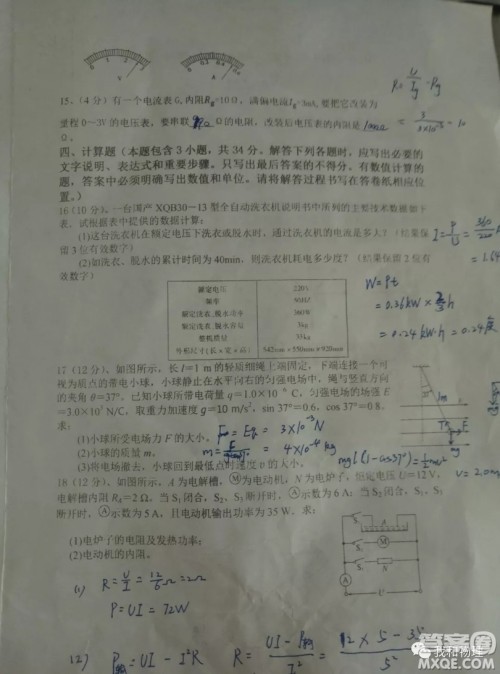 15.(4分)有一个电流表G,内阻Rg=10Ω,满偏电流Ig=3mA,要把它改装为
量程0—3V的电压表,要串联990Ω的电阻,改装后电压表的内阻是1000
Ω。
四、计算题(本题包含3小题,共34分。解答下列各题时,应写出必要的
文字说明、表达式和重要步骤。只写出最后答案的不得分。有数值计算的
题,答案中必须明确写出数值和单位。请将解答过程书写在答卷纸相应位
置。)
16(10分)。一台国产XQB30—13型全自动洗衣机说明书中所列的主要技术数据如下
表。试根据表中提供的数据计算:
(1)这台洗衣机在额定电压下洗衣或脱水时,通过洗衣机的电流是多大?(结果保
留3位有效数字)
(2)如洗衣、脱水的累计时间为40min,则洗衣机耗电多少度?(结果保留2位有
效数字)
W=Pt
=0.36kW×h
=0.24kW·h=0.24度
额定电压 220V
频率 50HZ
额定洗衣、脱水功率 360W
额定洗衣、脱水容量 3kg
整机质量 33kg
外形尺寸(长×宽×高) 542mm×550mm×920mm
17(12分)。如图所示,长l=1m的轻质细绳上端固定,下端连接一个可
视为质点的带电小球,小球静止在水平向右的匀强电场中,绳与竖直方向
的夹角θ=37°。已知小球所带电荷量q=1.0×10 C,匀强电场的场强E
=3.0×10³N/C,取重力加速度g=10m/s²,sin 37°=0.6,cos 37°=0.8。
求:
(1)小球所受电场力F的大小。
=Eq=3×10⁻³N
(2)小球的质量m。
=4×10⁻⁴kg
(3)将电场撤去,小球回到最低点时速度υ的大小。
mgl(1-cos37°)=½mv²
v=2.0m
18(12分)。如图所示,A为电解槽,Ⓜ为电动机,N为电炉子,恒定电压U=12V,
电解槽内阻RA=2Ω,当S₁闭合,S₂、S₃断开时,Ⓐ示数为6A;当S₂闭合,S₁、S₃
断开时,Ⓐ示数为5A,且电动机输出功率为35W。求:
(1)电炉子的电阻及发热功率;
(2)电动机的内阻。
(1) R=U/I=12/6Ω=2Ω
P=UI=72W
我和物理
答案圈
MXQE.COM